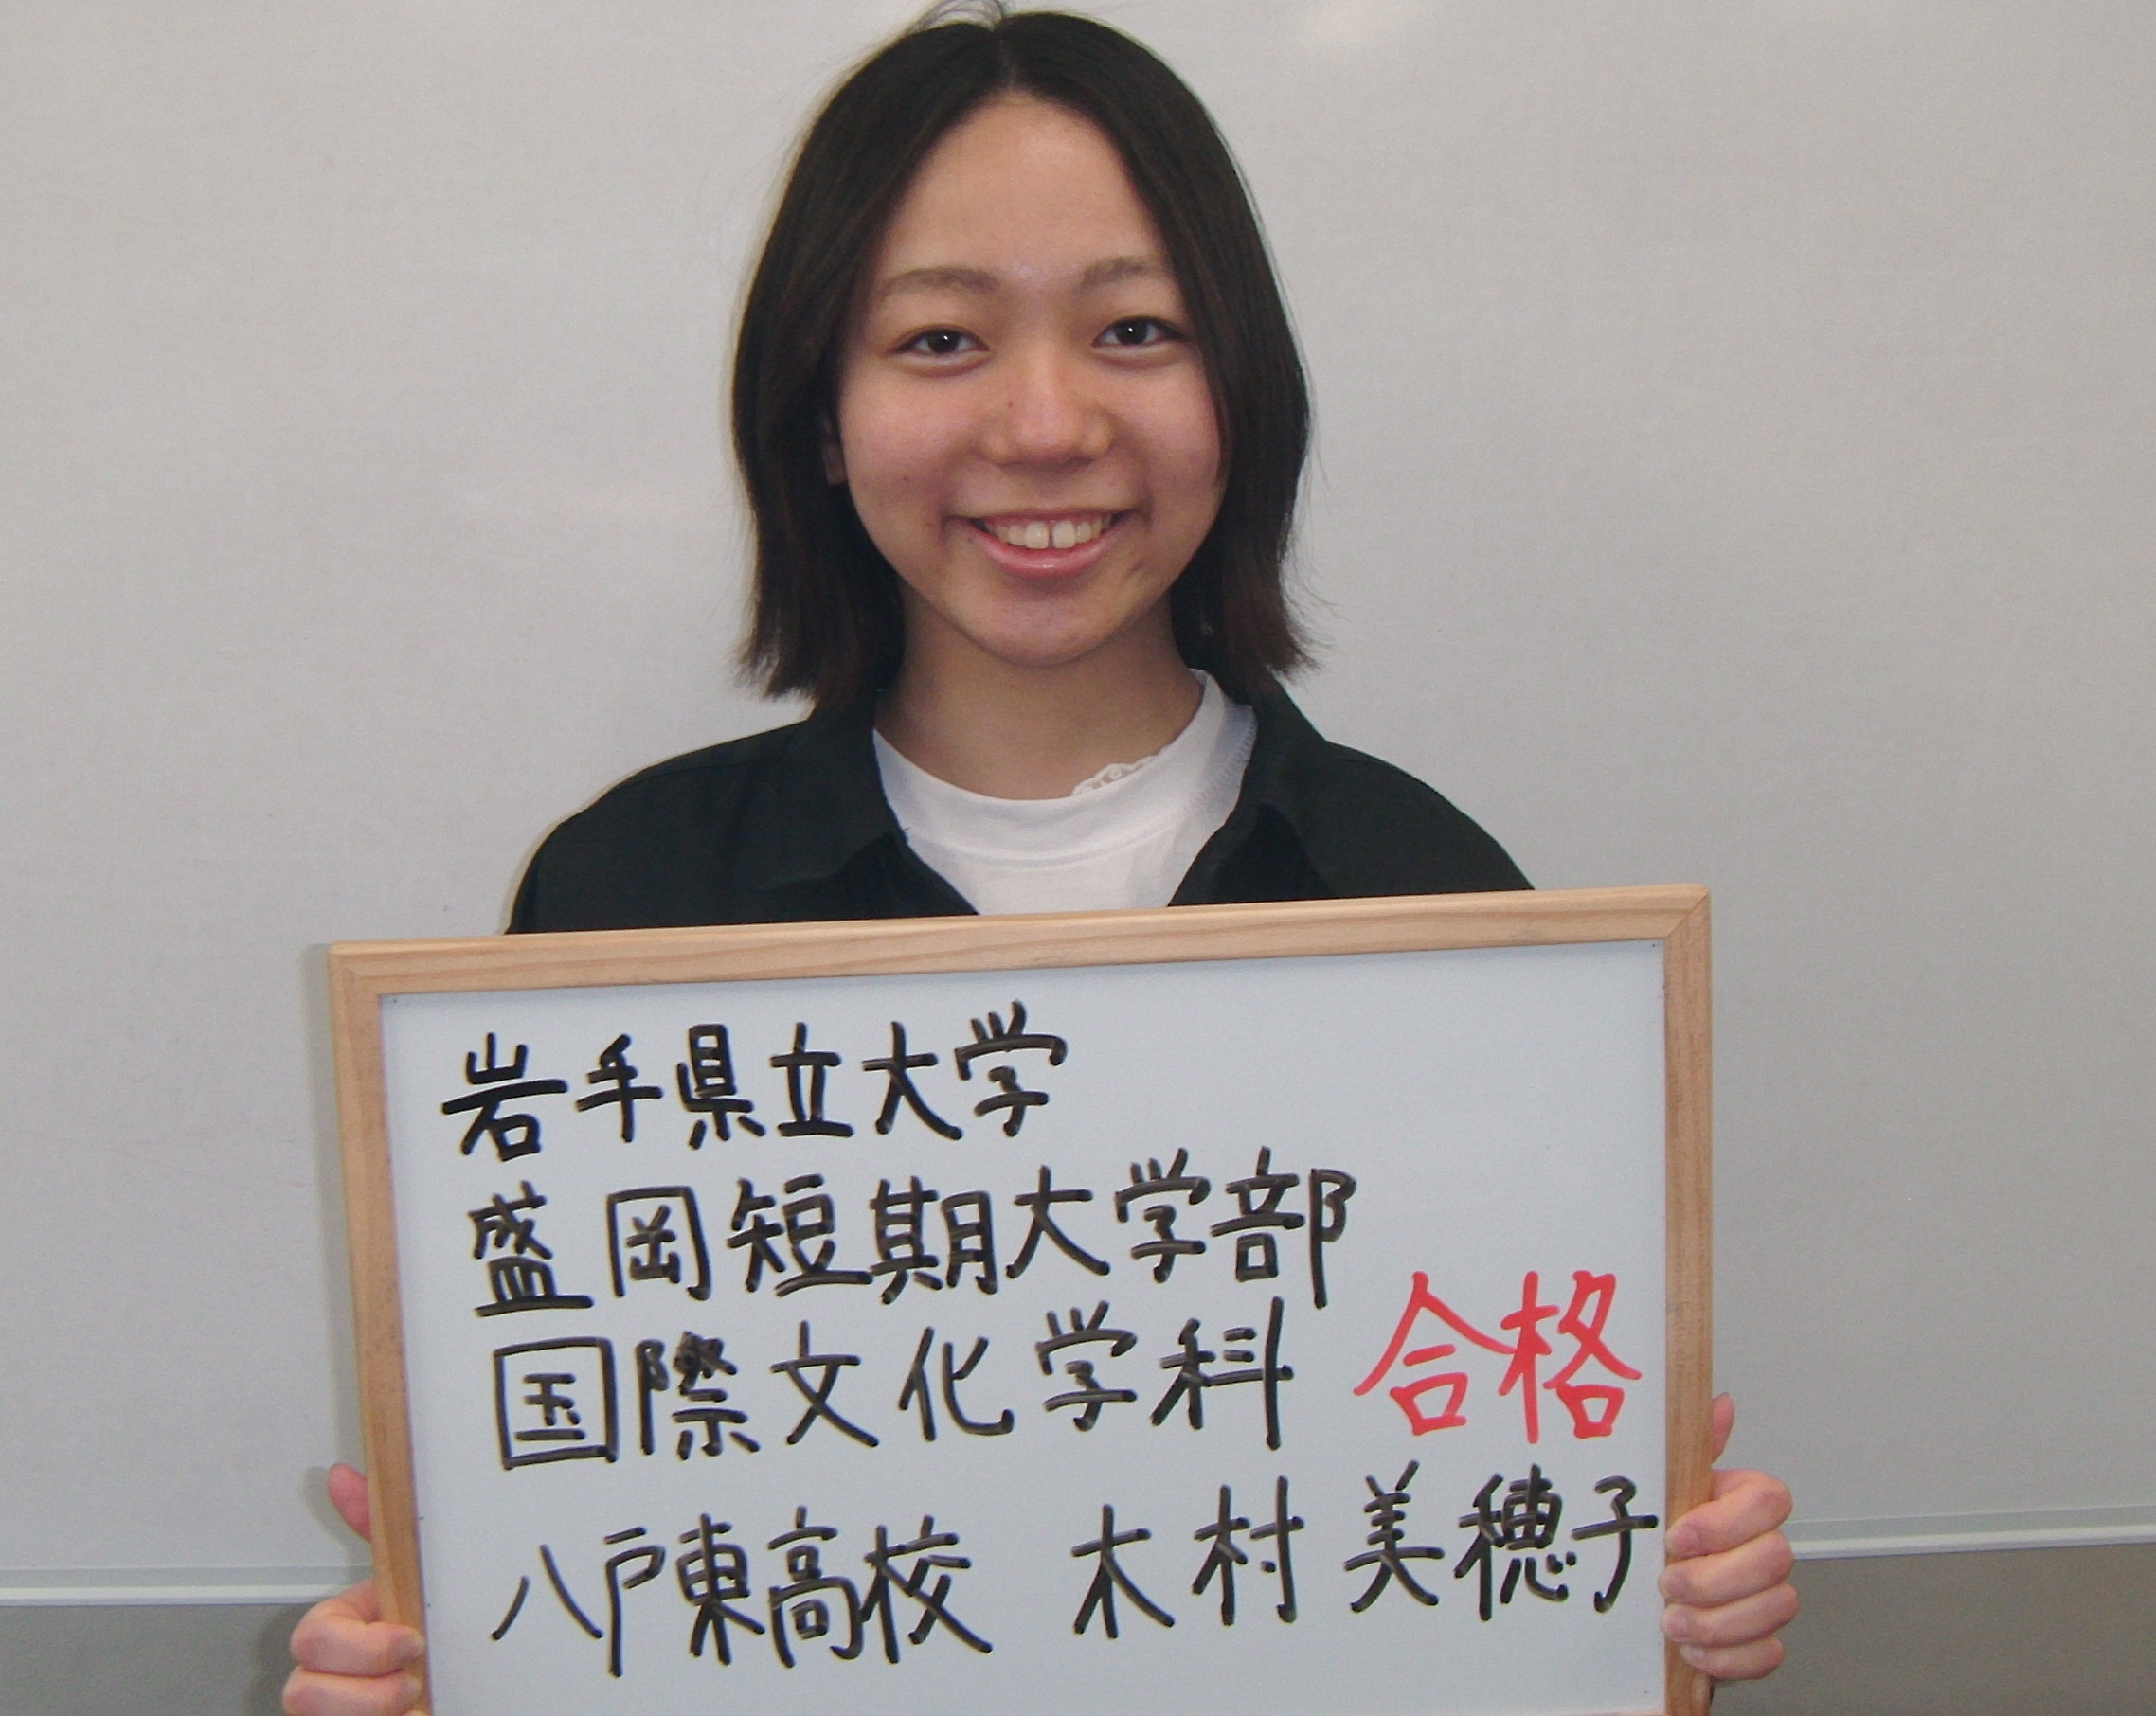 岩手県立大学
盛岡短期大学部
国際文化学科 合格
八戸東高校 木村 美穂子